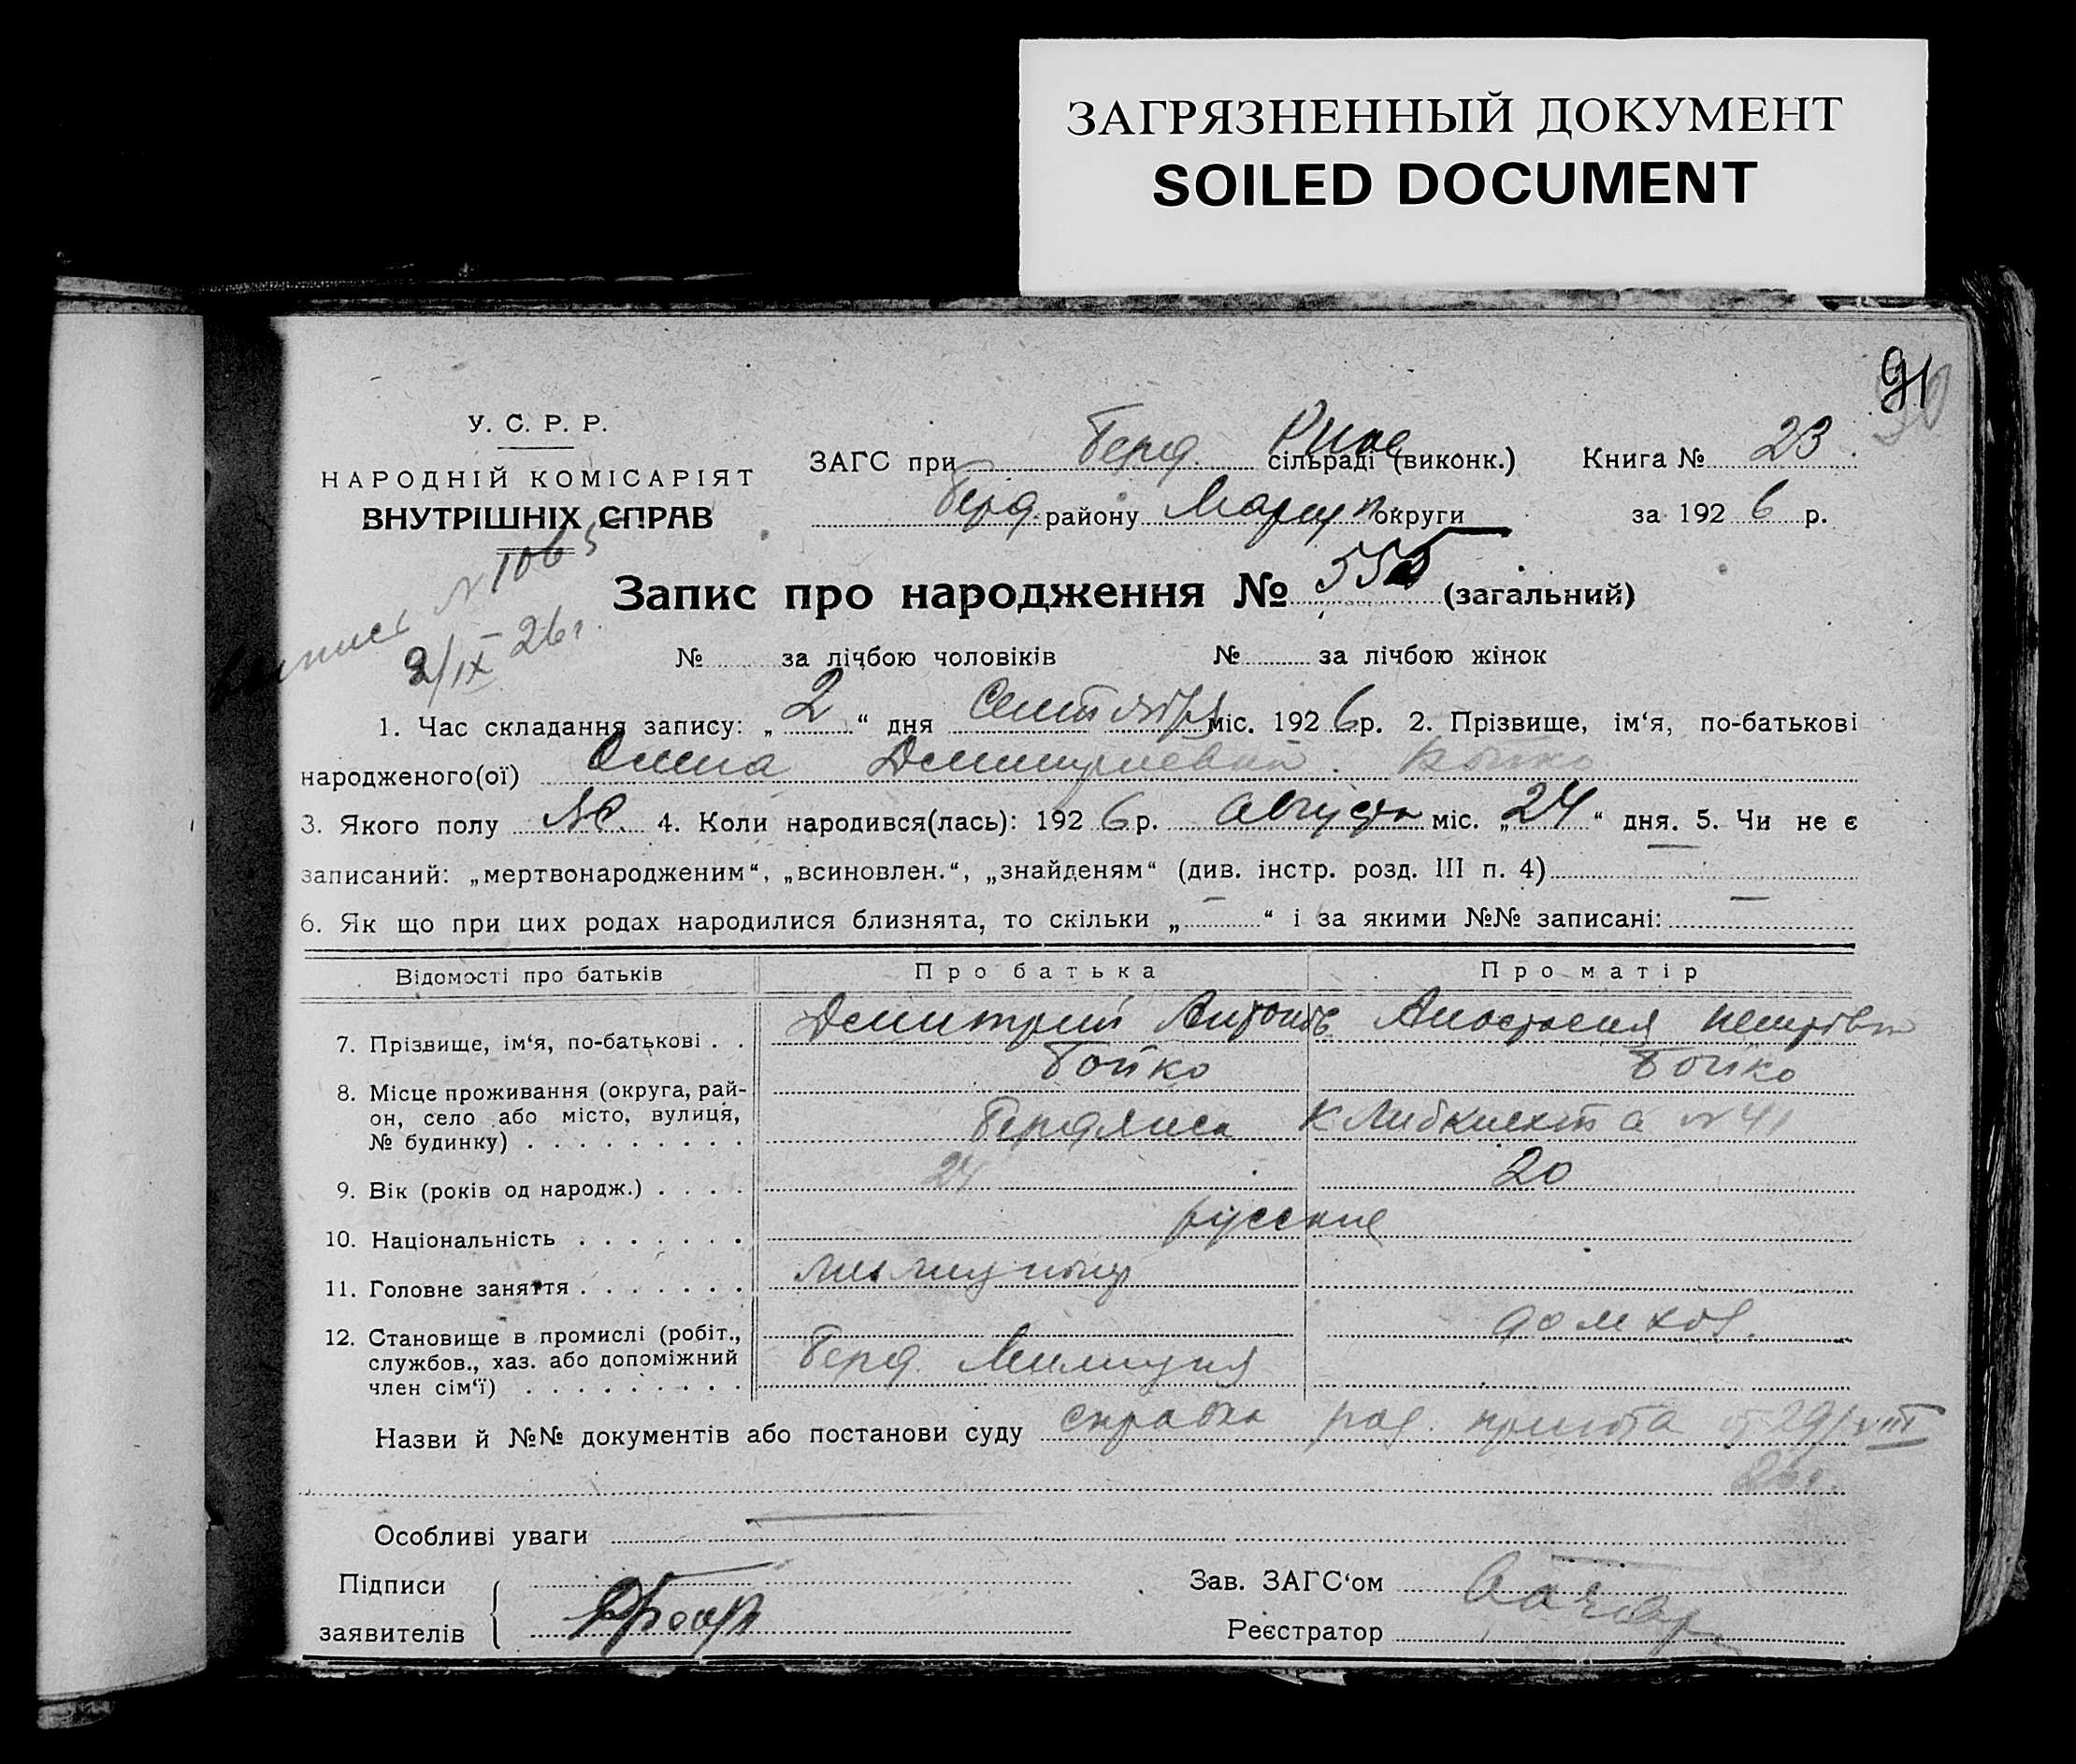 ЗАГРЯЗНЕННЫЙ ДОКУМЕНТ
SOILED DOCUMENT
91
У. С. Р. Р.
НАРОДНІЙ КОМІСАРІЯТ
ВНУТРІШНІХ СПРАВ
ЗАГС при Берд. сільраді (виконк.) Книга № 23.
Берд. району Мариуп округи за 192 6 р.
N 1065
2/IX 26 г.
Запис про народження № 555 (загальний)
№ за лічбою чоловіків № за лічбою жінок
1. Час складання запису: „ 2 “ дня Сентября міс. 192 6 р. 2. Прізвище, ім‘я, по-батькові
народженого(ої) Дмитриевна Бойко
3. Якого полу Ж. 4. Коли народився(лась): 192 6 р. Августа міс. „ 24 “ дня. 5. Чи не є
записаний: „мертвонародженим“, „всиновлен.“, „знайденям“ (див. інстр. розд. III п. 4) —
6. Як що при цих родах народилися близнята, то скільки „ — “ і за якими №№ записані: —
Відомості про батьків Про батька Про матір
7. Прізвище, ім‘я, по-батькові . . Дмитрий Антонов Анастасия Петровн
Бойко Бойко
8. Місце проживання (округа, рай-
он, село або місто, вулиця,
№ будинку) . . . . . . . . . Бердянск К Либкнехта N 41
9. Вік (років од народж.) . . . . 24 20
10. Національність . . . . . . . русские
11. Головне заняття . . . . . . . милиционер
12. Становище в промислі (робіт.,
службов., хаз. або допоміжний
член сім‘ї) . . . . . . . . . Берд. Милиция домхоз.
Назви й №№ документів або постанови суду справка род. приюта от 29/VIII
26 г.
Особливі уваги
Підписи
заявителів
Зав. ЗАГС‘ом
Реєстратор